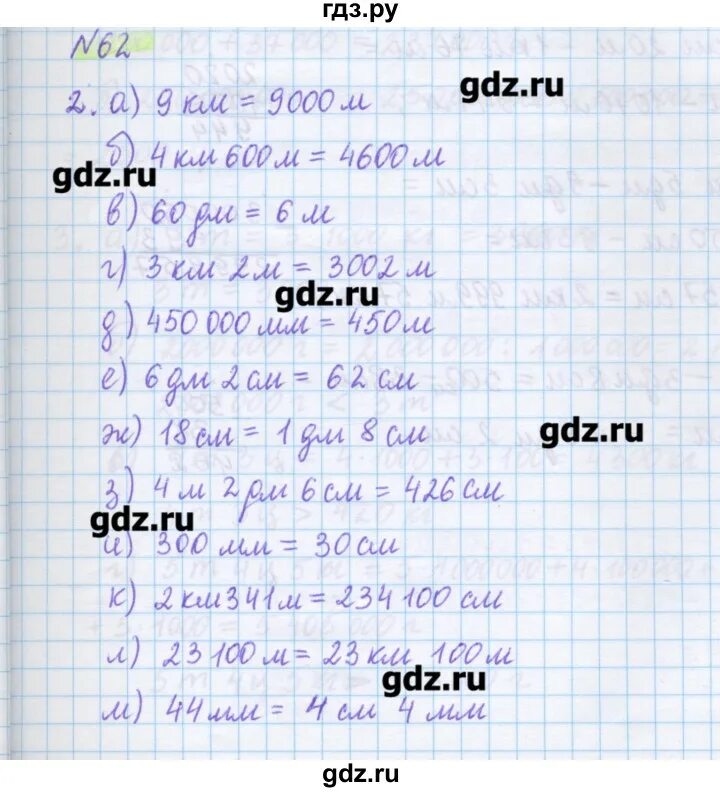 гдз.ру
№62
gdz.ru
2. а) 9 км = 9000 м
б) 4 км 600 м = 4600 м
gdz.ru
в) 60 дм = 6 м
г) 3 км 2 м = 3002 м
gdz.ru
д) 450 000 мм = 450 м
е) 6 дм 2 см = 62 см
ж) 18 см = 1 дм 8 см
gdz.ru
з) 4 м 2 дм 6 см = 426 см
gdz.ru
и) 300 мм = 30 см
к) 2 км 341 м = 234 100 см
л) 23 100 м = 23 км 100 м
gdz.ru
м) 44 мм = 4 см 4 мм
gdz.ru